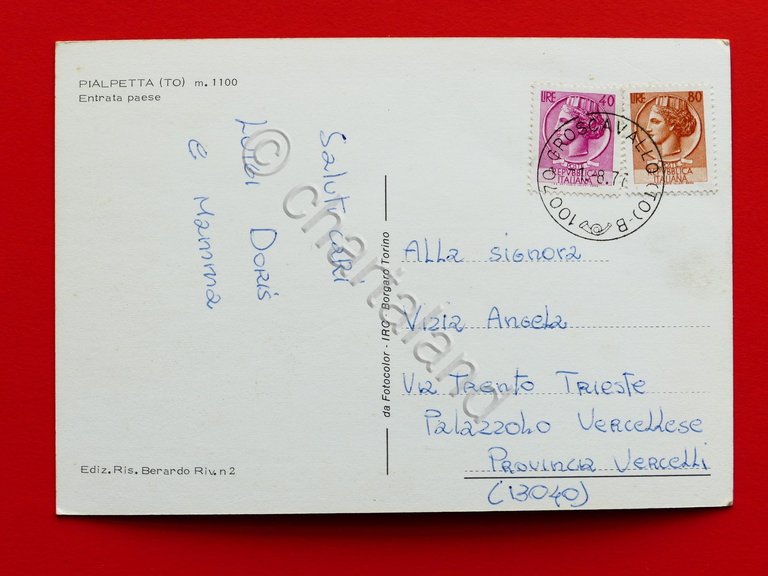 PIALPETTA (TO) m. 1100
Entrata paese
Saluti cari
Luigi Doris
e Mamma
LIRE 40
POSTE
REPVBBLICA
ITALIANA
LIRE 80
POSTE
REPVBBLICA
ITALIANA
10070 GROSCAVALLO (TO)-B
Alla signora
Vizia Angela
Via Trento Trieste
Palazzolo Vercellese
Provincia Vercelli
(13040)
da Fotocolor - IRO - Borgaro Torino
Ediz. Ris. Berardo Riv. n 2
© chartaland